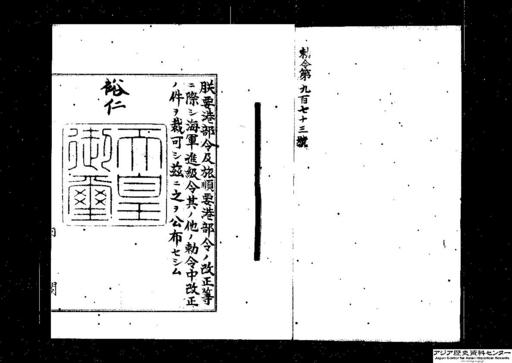 勅令第九百七十三號
朕要港部令及旅順要港部令ノ改正等
ニ際シ海軍進級令其ノ他ノ勅令中改正
ノ件ヲ裁可シ茲ニ之ヲ公布セシム
裕仁
天皇
御璽
内閣
アジア歴史資料センター
Japan Center for Asian Historical Records